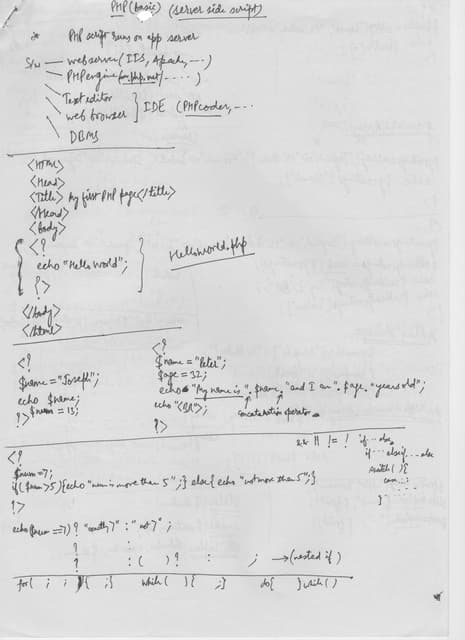 PHP (basic) (server side script)
* PHP script runs on app server
S/w — webserver (IIS, Apach, ...)
PHP engine (         php.net/ .....)
Text editor
web browser } IDE (PHPcoder, ...
DBMS
<HTML>
<Head>
<Title> My first PHP page </title>
</Head>
<body>
<?
echo "Hello World"; Helloworld.php
?>
</body>
</html>
<? <?
$name = "Joseph"; $name = "Peter";
echo $name; $age = 32;
$num = 13; echo "My name is ". $name, "and I am", $age, "years old";
?> echo "<BR>"; concatenation operator
?>
&& || != ! if...else
if...elseif...else
switch ( ) {
case ..:
}
<?
$num=7;
if($num>5){echo "num is more than 5";} else{ echo "not more than 5";}
?>
echo($num ==7) ? "      7" : "not 7" ;
?
? : ( ) ? : ; → (nested if)
?
for( ; ; ){ ;} while( ){ ;} do{ }while( )